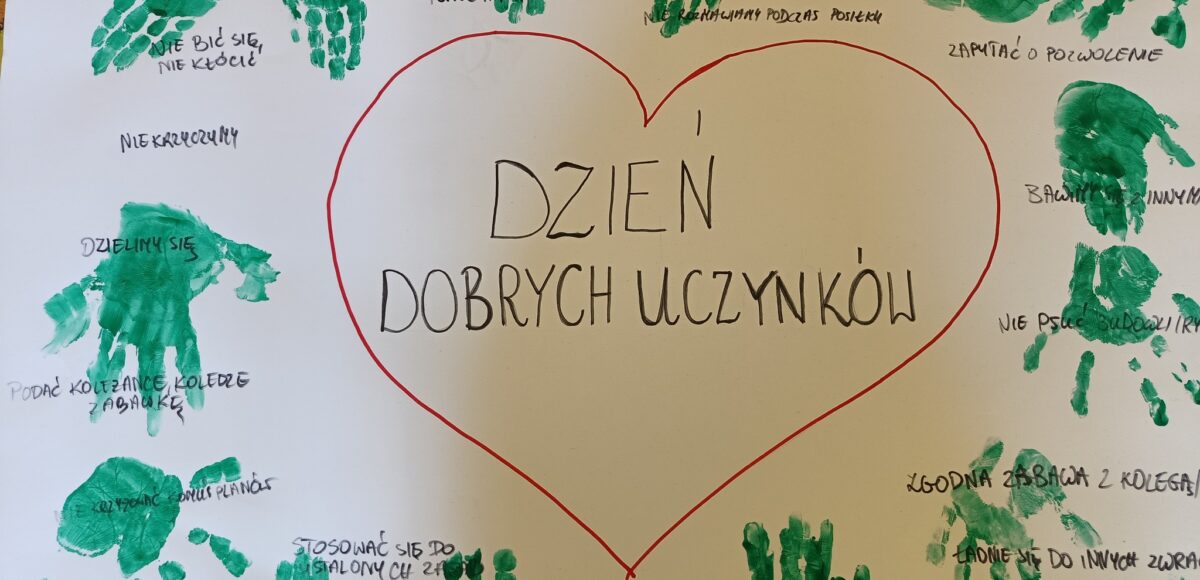 NIE BIĆ SIĘ,
NIE KŁÓCIĆ
NIE ROZMAWIAMY PODCZAS POSIŁKU
ZAPYTAĆ O POZWOLENIE
NIE KRZYCZYMY
DZIEŃ
DOBRYCH UCZYNKÓW
BAWIMY SIĘ Z INNYMI
DZIELIMY SIĘ
NIE PSUĆ BUDOWLI
PODAĆ KOLEŻANCE, KOLEDZE
ZABAWKĘ
KRZYŻOWAĆ KOMUŚ PLANÓW
ZGODNA ZABAWA Z KOLEGĄ/
STOSOWAĆ SIĘ DO
USTALONYCH ZASAD
ŁADNIE SIĘ DO INNYCH ZWRA